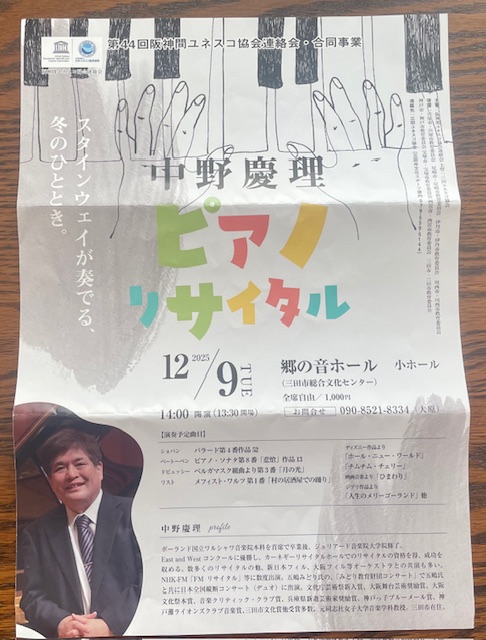 第44回阪神間ユネスコ協会連絡会・合同事業
スタインウェイが奏でる、
冬のひととき。
中野慶理
ピアノ
リサイタル
12 2025/9 TUE
14:00 開演(13:30 開場)
郷の音ホール 小ホール
(三田市総合文化センター)
全席自由/1,000円
お問合せ 090-8521-8334(大原)
【演奏予定曲目】
ショパン バラード第4番作品52
ベートーベン ピアノ・ソナタ第8番「悲愴」作品13
ドビュッシー ベルガマスク組曲より第3番「月の光」
リスト メフィスト・ワルツ第1番「村の居酒屋での踊り」
ディズニー作品より
「ホール・ニュー・ワールド」
「チムチム・チェリー」
映画音楽より「ひまわり」
ジブリ作品より
「人生のメリーゴーランド」他
中野慶理 profile
ポーランド国立ワルシャワ音楽院本科を首席で卒業後、ジュリアード音楽院大学院修了。
East and West コンクールに優勝し、カーネギーリサイタルホールでのリサイタルの資格を得、成功を
収める。数多くのリサイタルの他、新日本フィル、大阪フィル等オーケストラとの共演も多い。
NHK-FM「FM リサイタル」等に数度出演。五嶋みどり氏の、「みどり教育財団コンサート」で五嶋氏
と共に日本全国縦断コンサート(デュオ)に出演。文化庁芸術祭新人賞、大阪舞台芸術奨励賞、大阪
文化祭本賞、音楽クリティック・クラブ賞、兵庫県新進芸術家奨励賞、神戸っ子ブルーメール賞、神
戸灘ライオンズクラブ音楽賞、三田市文化賞他受賞多数。元同志社女子大学音楽学科教授。三田市在住。